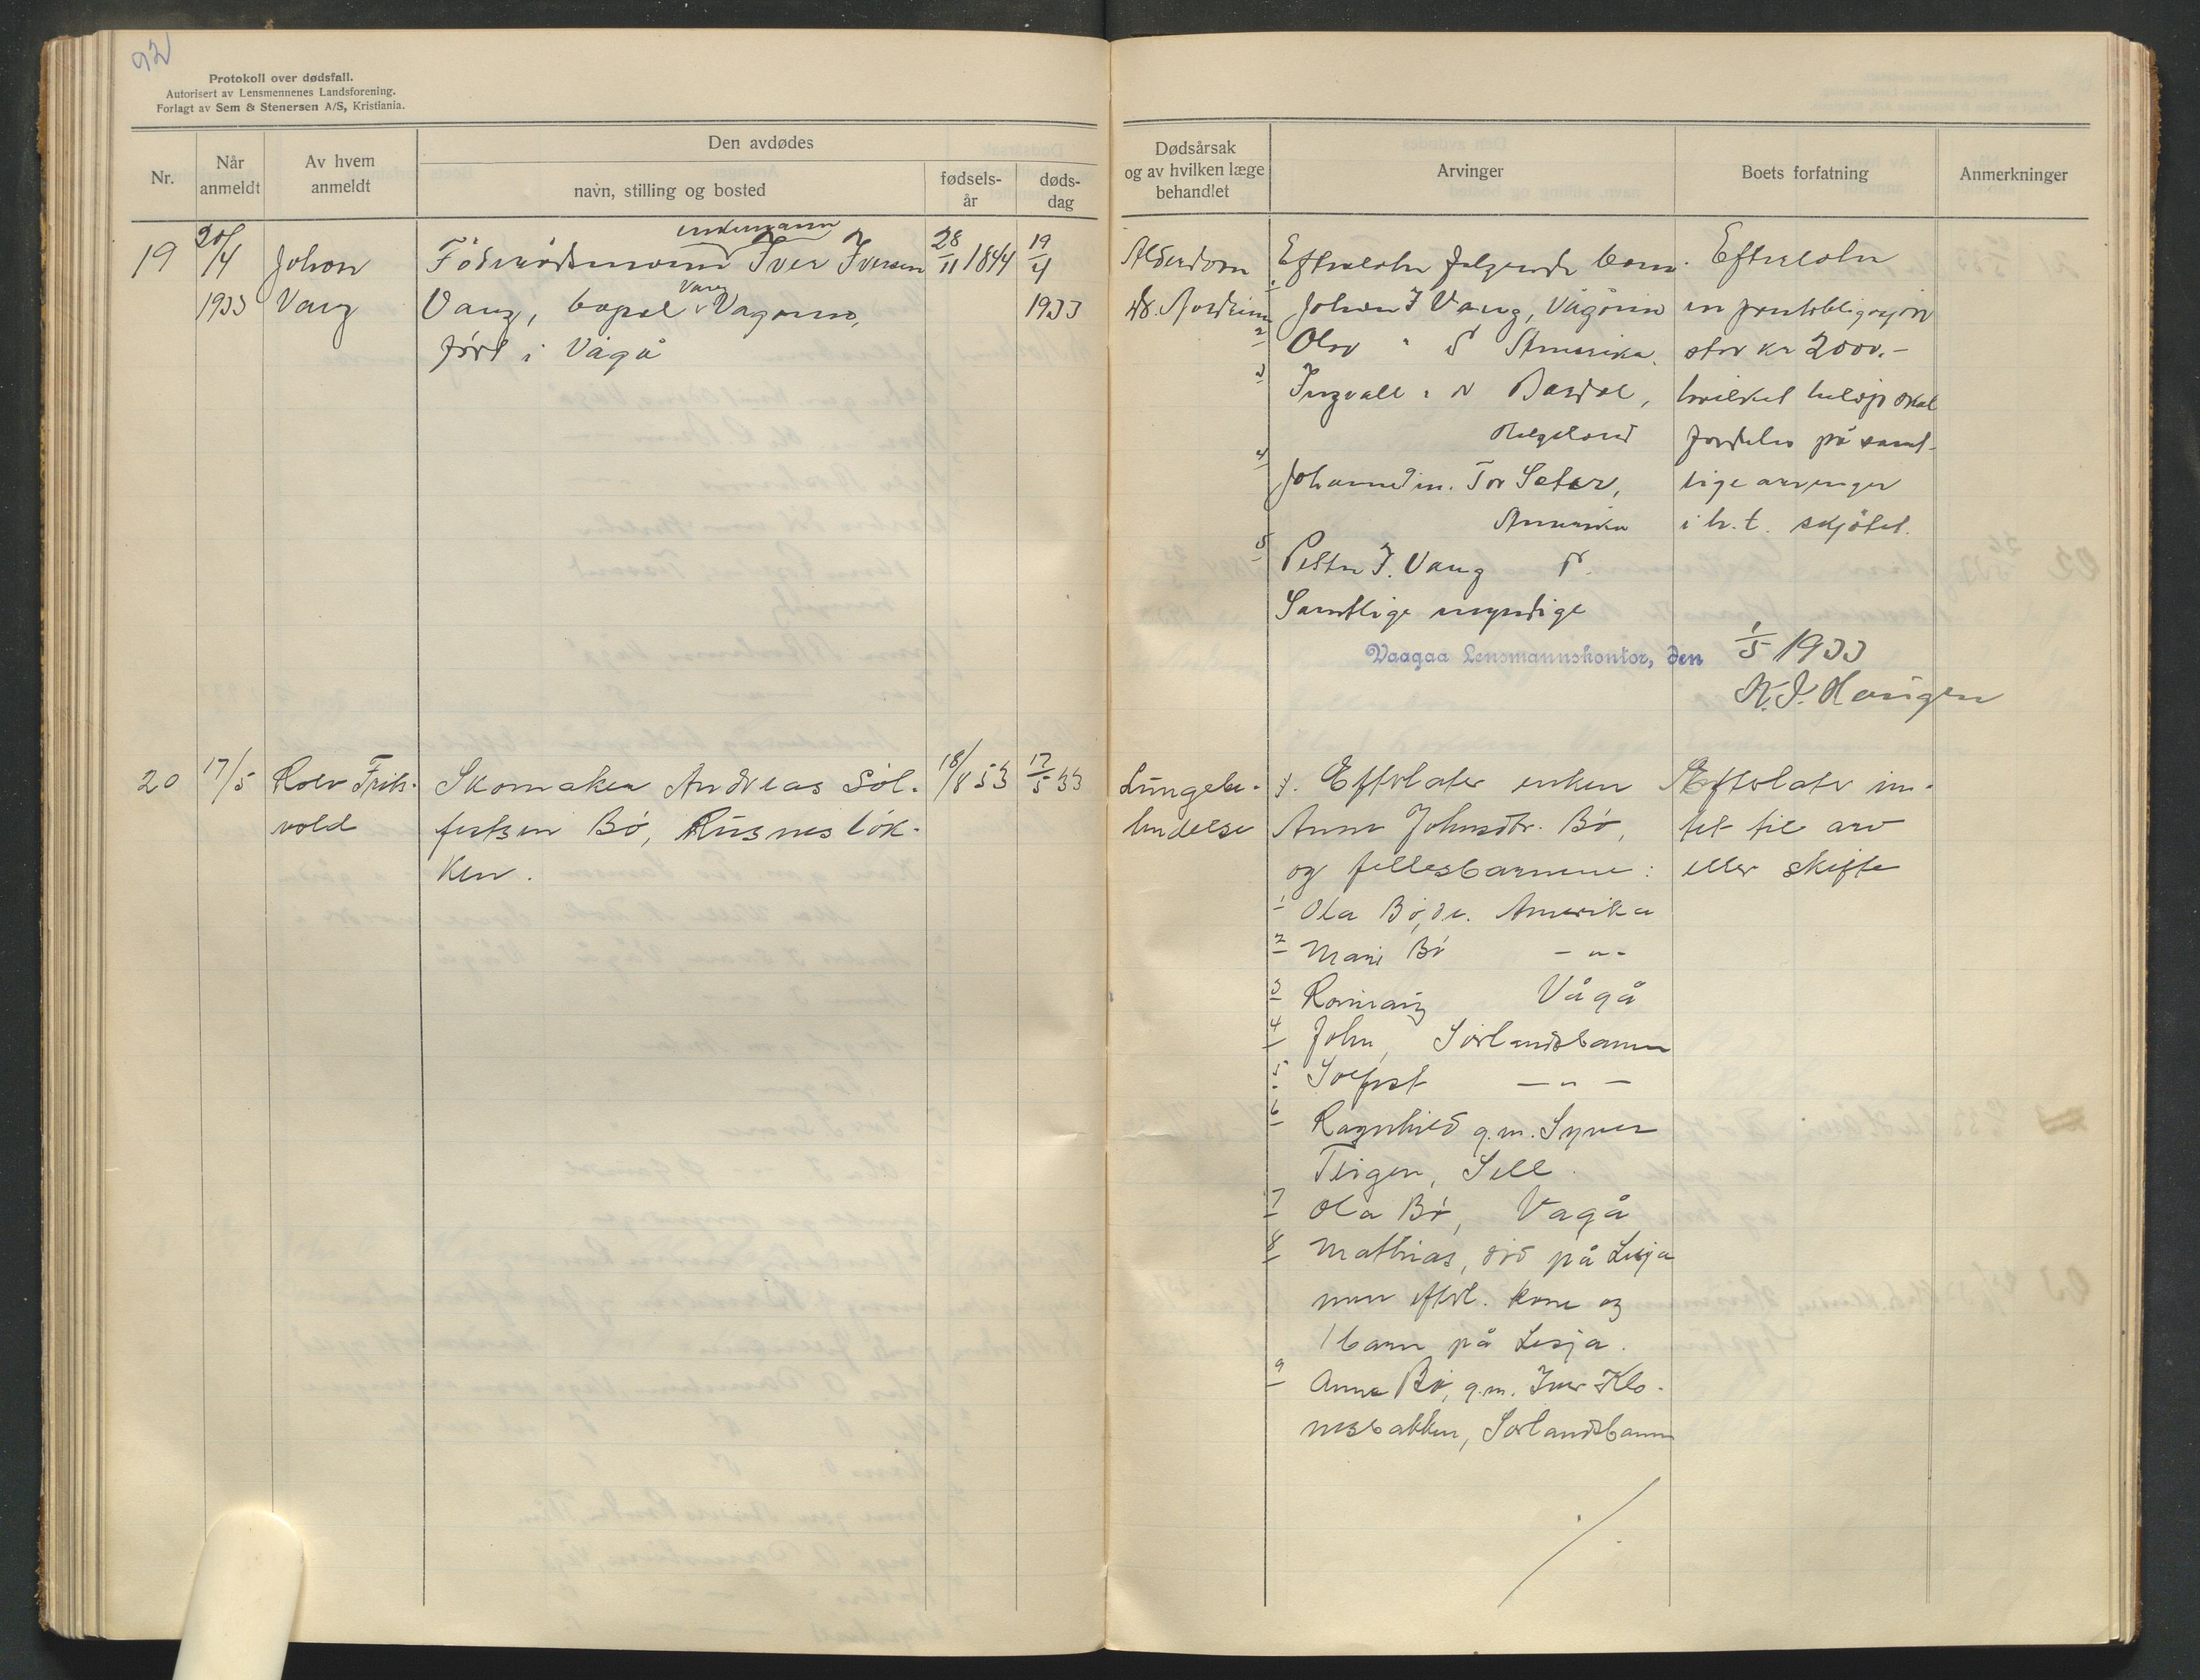 22
Protokoll over dødsfall.
Autorisert av Lensmennenes Landsforening.
Forlagt av Sem & Stenersen A/S, Kristiania.
Nr.
Når anmeldt
Av hvem anmeldt
Den avdødes
navn, stilling og bosted
fødsels-år
døds-dag
Dødsårsak og av hvilken læge behandlet
Arvinger
Boets forfatning
Anmerkninger
19
20/4
1933
Johan
Vang
enkemann
Föderådsmann Iver Iversen
Vang, bopel Vang Vågårusten,
født i Vågå
28/11 1844
19/4
1933
Alderdom
dr.
Efterlater følgende barn.
1 Johan I Vang, Vågå
2 Olav " " Amerika.
3 Ingvall " " Bardal,
Helgeland
4 Johanne g.m. Tor Seter,
Amerika
5 Petter I. Vang
Samtlige myndige
Efterlater
en pantobligasjon
stor kr 2000.-
hvilket beløp skal
fordeles på samt-
lige arvinger
i h.t. skjøtet.
Vaagaa Lensmannskontor, den 1/5 1933
K. J. Haugen
20
17/5
Rolv Friis-
vold
Skomaker Andreas Sol-
festsen Bö, Rusneslök-
ken.
18/8 53
17/5 33
Lungebe-
tendelse
Efterlater enken
Anne Johnsdtr. Bö,
og fellesbarnene:
1 Ola Bö, d.e. Amerika
2 Mari Bö - " -
3 Vågå
4 John, Sörlandsbanen
5 Solfest — " —
6 Ragnhild g.m. Syver
Teigen, Sell.
7 Ola Bö, Vågå
8 Mathias, död på Lesja
men efterl. kone og
1 barn på Lesja.
9 Anna Bö, g.m. Iver Klo-
nesbakken, Sörlandsbanen
Efterlater in-
tet til arv
eller skifte